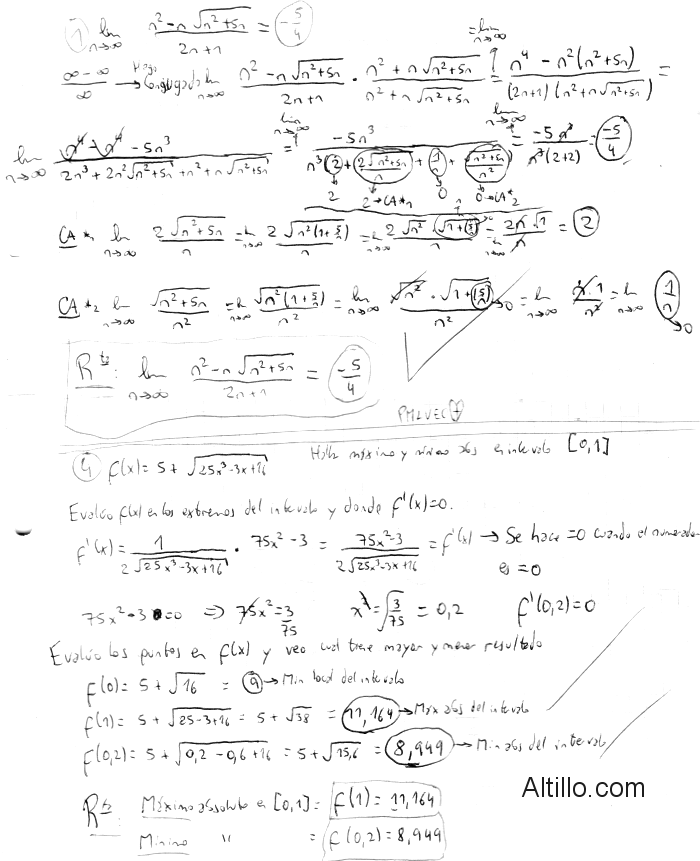 1) lim n→∞ (n² - n√(n²+5n)) / (2n+1) = -5/4
(∞-∞)/∞ → Hago Conjugado lim n→∞ (n² - n√(n²+5n)) / (2n+1) · (n² + n√(n²+5n)) / (n² + n√(n²+5n)) = lim n→∞ (n⁴ - n²(n²+5n)) / ((2n+1)(n²+n√(n²+5n))) =
lim n→∞ (n⁴ - n⁴ - 5n³) / (2n³ + 2n²√(n²+5n) + n² + n√(n²+5n)) = lim n→∞ -5n³ / (n³(2 + 2√(n²+5n)/n + 1/n + √(n²+5n)/n²)) = lim n→∞ -5n³ / (n³(2+2)) = -5/4
2 2→CA*1 0 0→CA*2
CA*1 lim n→∞ 2√(n²+5n)/n = lim n→∞ 2√(n²(1+5/n))/n = lim n→∞ 2√n²·√(1+5/n)/n = lim n→∞ 2n·1/n = 2
CA*2 lim n→∞ √(n²+5n)/n² = lim n→∞ √(n²(1+5/n))/n² = lim n→∞ √n²·√(1+5/n)/n² →0 = lim n→∞ n·1/n² = lim n→∞ 1/n →0
Rta: lim n→∞ (n² - n√(n²+5n)) / (2n+1) = -5/4
4) f(x) = 5 + √(25x³-3x+16) máximo y mínimo abs en intervalo [0,1]
Evalúo f(x) en los extremos del intervalo y donde f'(x)=0.
f'(x) = 1 / (2√(25x³-3x+16)) · 75x²-3 = (75x²-3) / (2√(25x³-3x+16)) = f'(x) → Se hace =0 cuando el numerador
es =0
75x²-3=0 ⇒ 75x²=3/75 x²=√(3/75) = 0,2 f'(0,2)=0
Evalúo los puntos en f(x) y veo cual tiene mayor y menor resultado
f(0) = 5 + √16 = 9 → Min local del intervalo
f(1) = 5 + √(25-3+16) = 5 + √38 = 11,164 → Máx abs del intervalo
f(0,2) = 5 + √(0,2-0,6+16) = 5 + √15,6 = 8,949 → Min abs del intervalo
Altillo.com
Rta: Máximo absoluto en [0,1] = f(1) = 11,164
Mínimo " = f(0,2) = 8,949